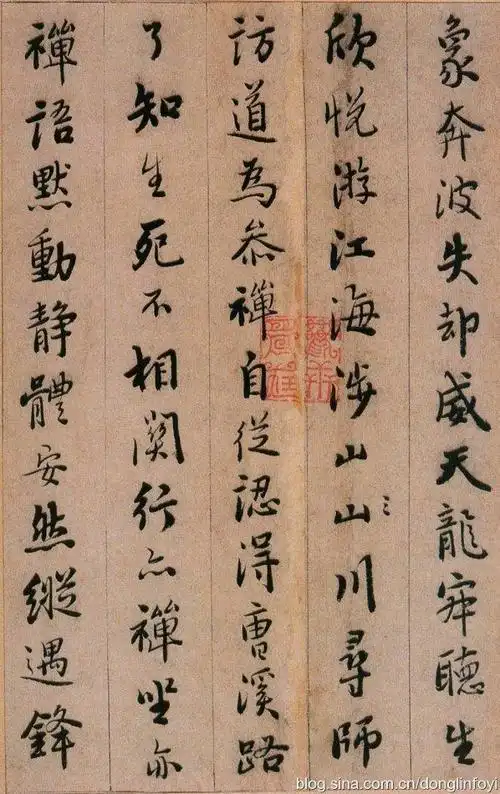 象奔波失却威天龍寂聽生
欣悅游江海涉山山川尋師
訪道為叅禪自從認得曹溪路
了知生死不相關行亦禪坐亦
禪語默動静體安然縱遇鋒
blog.sina.com.cn/donglinfoyi